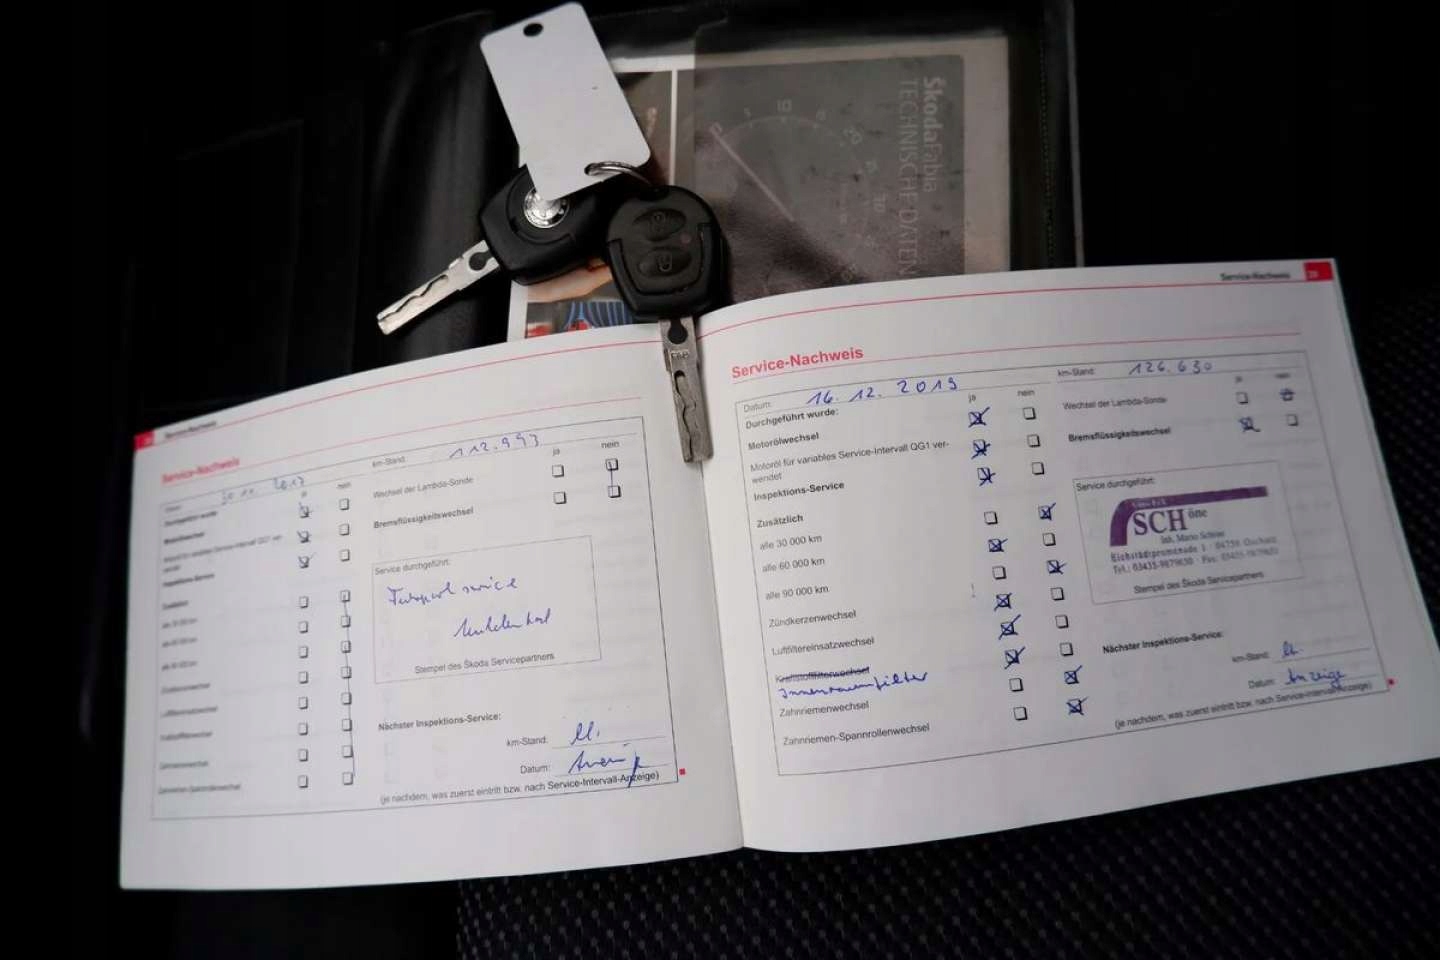 ŠkodaFabia
TECHNISCHE DATEN
5
10
20
Service-Nachweis
Service-Nachweis
km-Stand:
112.993
ja
nein
ja
nein
Durchgeführt wurde
Motorölwechsel
Motoröl für variables Service-Intervall QG1 ver-
wendet
Inspektions-Service
Zusätzlich
alle 30 000 km
alle 60 000 km
alle 90 000 km
Zündkerzenwechsel
Luftfiltereinsatzwechsel
Kraftstofffilterwechsel
Zahnriemenwechsel
Zahnriemen-Spannrollenwechsel
Wechsel der Lambda-Sonde
Bremsflüssigkeitswechsel
Service durchgeführt:
Stempel des Škoda Servicepartners
Nächster Inspektions-Service:
km-Stand:
Datum:
(je nachdem, was zuerst eintritt bzw. nach Service-Intervall-Anzeige)
Service-Nachweis
Service-Nachweis
Datum:
16. 12. 2019
km-Stand:
126.630
ja
nein
ja
nein
Durchgeführt wurde:
Motorölwechsel
Motoröl für variables Service-Intervall QG1 ver-
wendet
Inspektions-Service
Zusätzlich
alle 30 000 km
alle 60 000 km
alle 90 000 km
Zündkerzenwechsel
Luftfiltereinsatzwechsel
Kraftstofffilterwechsel
Innenraumfilter
Zahnriemenwechsel
Zahnriemen-Spannrollenwechsel
Wechsel der Lambda-Sonde
Bremsflüssigkeitswechsel
Service durchgeführt:
SCHöne
Inh. Mario Schöne
Eichstädtpromenade 1 04758 Oschatz
Tel.: 03435-9879630 Fax: 03435-9879620
Stempel des Škoda Servicepartners
Nächster Inspektions-Service:
km-Stand:
Datum:
Anzeige
(je nachdem, was zuerst eintritt bzw. nach Service-Intervall-Anzeige)